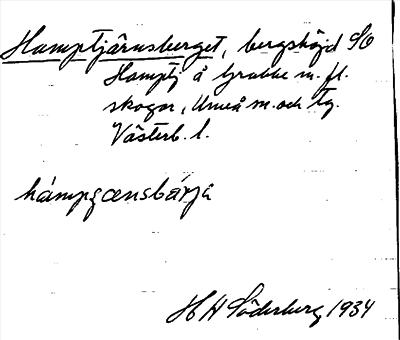 Hamptjärnsberget, bergshöjd SO
Hamptj å Grubbe m.fl.
skogar, Umeå m. och tg.
Västerb. l.
hámpȿænsbárja
H H Söderberg 1934